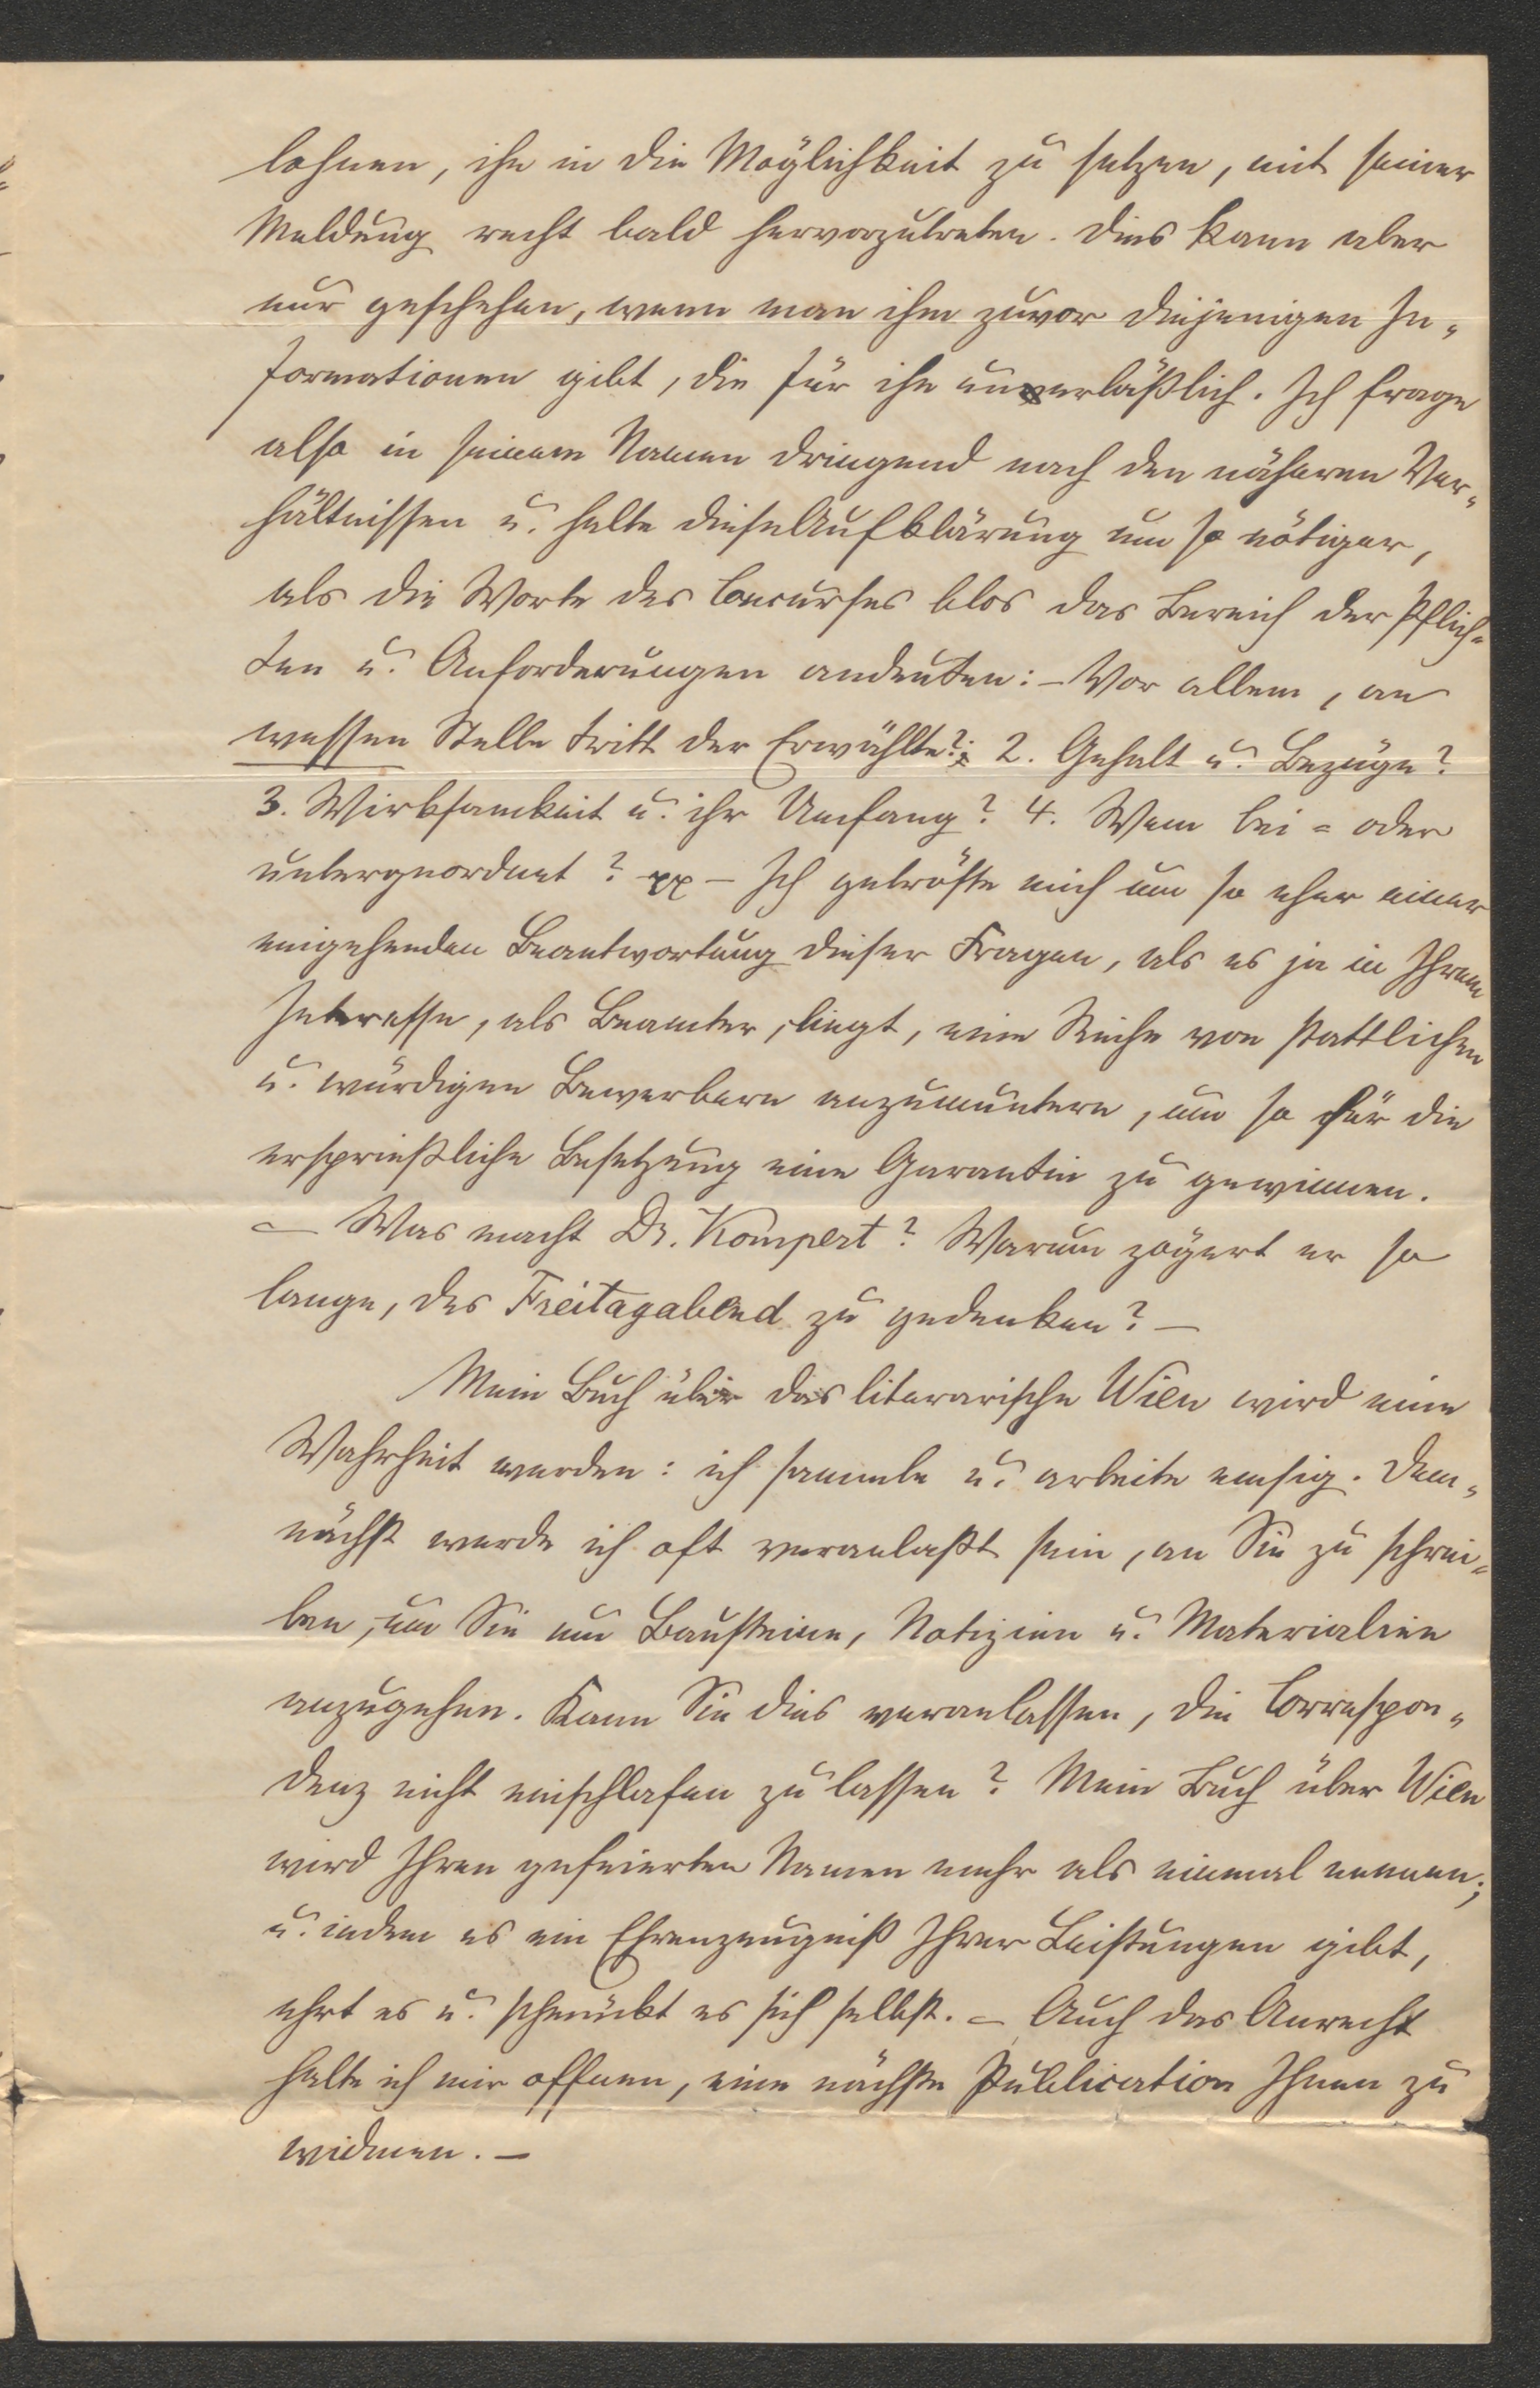 lohnen, ihn in die Möglichkeit zu setzen, mit seiner
Meldung recht bald hervorzutreten. Dies kann aber
nur geschehen, wenn man ihm zuvor diejenigen In-
formationen gibt, die für ihn unerläßlich. Ich frage
also in seinem Namen dringend nach den näheren Ver-
hältnissen u. halte diese Aufklärung um so nötiger,
als die Worte des Concurses blos das Bereich der Pflich-
ten u. Anforderungen andeuten: – Vor allem, an
wessen Stelle tritt der Erwählte?; 2. Gehalt u. Bezüge?
3. Wirksamkeit u. ihr Umfang? 4. Wem bei- oder
untergeordnet? xx – Ich getröste mich um so eher einer
eingehenden Beantwortung dieser Fragen, als es ja in Ihrem
Interesse, als Beamter, liegt, eine Reihe von stattlichen
u. würdigen Bewerbern anzumuntern, um so für die
ersprießliche Besetzung eine Garantie zu gewinnen.
– Was macht Dr. Kompert? Warum zögert er so
lange, des Freitagabend zu gedenken? –
Mein Buch über das literarische Wien wird eine
Wahrheit werden: ich sammle u. arbeite emsig. Dem-
nächst werde ich oft veranlaßt sein, an Sie zu schrei-
ben, um Sie um Bausteine, Notizien u. Materialien
anzugehen. Kann Sie dies veranlassen, die Correspon-
denz nicht einschlafen zu lassen? Mein Buch über Wien
wird Ihren gefeierten Namen mehr als einmal nennen;
u. indem es ein Ehrenzeugniß Ihrer Leistungen gibt,
ehrt es u. schmückt es sich selbst. – Auch das Anrecht
halte ich mir offen, eine nächste Publication Ihnen zu
widmen. –